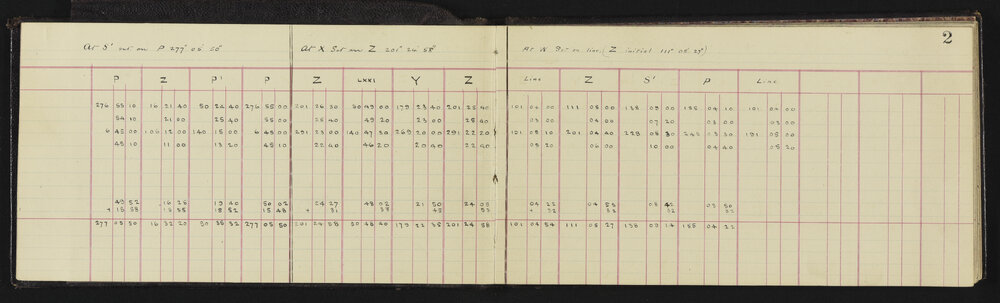 2
At S' set on P 277° 05' 50" At X Set on Z 201° 24' 58" At W Set on line (Z initial 111° 05' 27")
P Z P' P Z LXXI Y Z Line Z S' P Line
276 55 10 16 21 40 50 24 40 276 55 00 201 25 30 50 49 00 179 23 40 201 25 40 101 04 00 111 05 00 138 09 00 155 04 10 101 04 00
54 10 21 00 25 40 55 00 25 40 49 20 23 00 25 40 03 00 04 00 07 20 03 00 03 00
6 45 00 106 12 00 140 15 00 6 45 00 291 23 00 140 47 30 269 20 00 291 22 20 191 05 10 201 04 40 228 08 30 245 03 30 191 05 00
45 10 11 00 13 20 45 10 22 40 46 20 20 40 22 40 05 20 06 00 10 00 04 40 05 20
49 52 16 25 19 40 50 02 24 27 48 02 21 50 24 05 04 22 04 55 08 42 03 50
+ 15 58 15 55 15 52 15 48 + 31 38 45 53 + 32 32 32 32
277 05 50 16 32 20 50 35 32 277 05 50 201 24 58 50 48 40 179 22 35 201 24 58 101 04 54 111 05 27 138 09 14 155 04 22